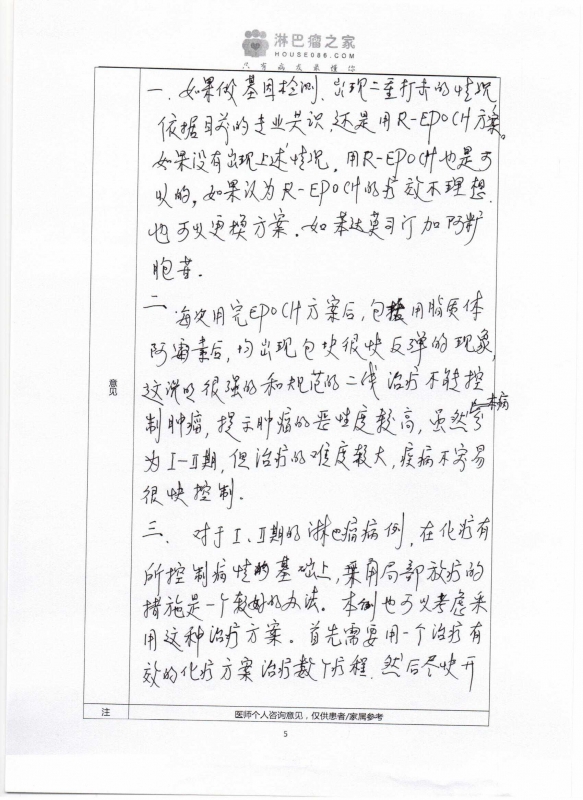 淋巴瘤之家
HOUSE086.COM
只有病友最懂你
一、如果做基因检测、出现二重打击的情况
依据目前的专业共识,还是用R-EPOCH方案。
如果没有出现上述情况,用R-EPOCH也是可
以的,如果认为R-EPOCH的疗效不理想,
也可以更换方案。如苯达莫司汀加阿糖
胞苷.
二、每次用完EPOCH方案后,包括用脂质体
阿霉素后,均出现包块很快反弹的现象,
这说明很强的和规范的二线治疗不能控
制肿瘤,提示肿瘤的恶性度较高,虽然本病
为I-II期,但治疗的难度较大,疾病不容易
很快控制.
意见
三、对于I、II期的淋巴瘤病例,在化疗有
所控制病情的基础上,采用局部放疗的
措施是一个较好的办法。本例也可以考虑采
用这种治疗方案。首先需要用一个治疗有
效的化疗方案治疗数个疗程,然后尽快开
注 医师个人咨询意见,仅供患者/家属参考
5